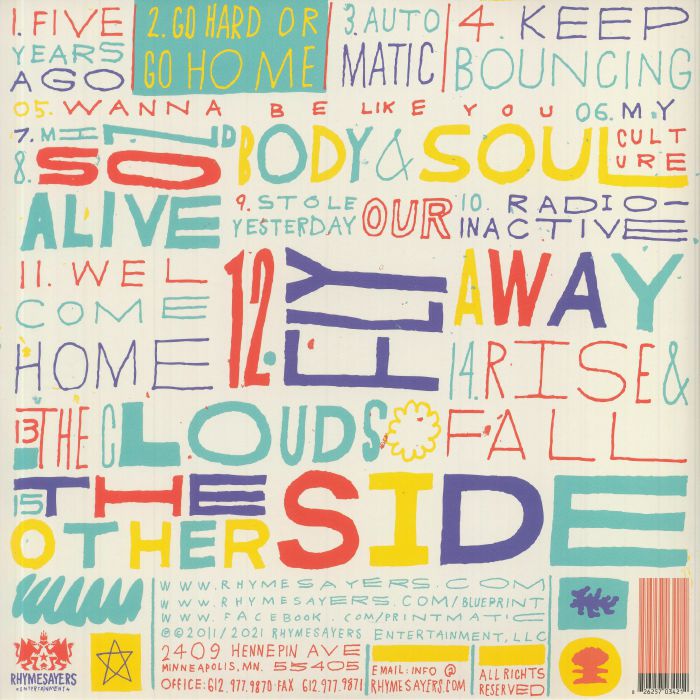 1. FIVE
YEARS
AGO
2. GO HARD OR
GO HOME
3. AUTO
MATIC
4. KEEP
BOUNCING
05. WANNA BE LIKE YOU
06. MY
CULT
URE
7. MIND
BODY & SOUL
8. SO
ALIVE
9. STOLE OUR
YESTERDAY
10. RADIO-
INACTIVE
11. WEL
COME
HOME
12. FLY AWAY
13 THE CLOUDS
14. RISE &
FALL
15 THE
OTHER SIDE
WWW.RHYMESAYERS.COM
WWW.RHYMESAYERS.COM/BLUEPRINT
WWW.FACEBOOK.COM/PRINTMATIC
©2011/2021 RHYMESAYERS ENTERTAINMENT, LLC
2409 HENNEPIN AVE
MINNEAPOLIS, MN. 55405
OFFICE: 612.977.9870 FAX 612.977.9871
EMAIL: INFO @
RHYMESAYERS.COM
ALL RIGHTS
RESERVED
RHYMESAYERS
ENTERTAINMENT
8 26257 03421